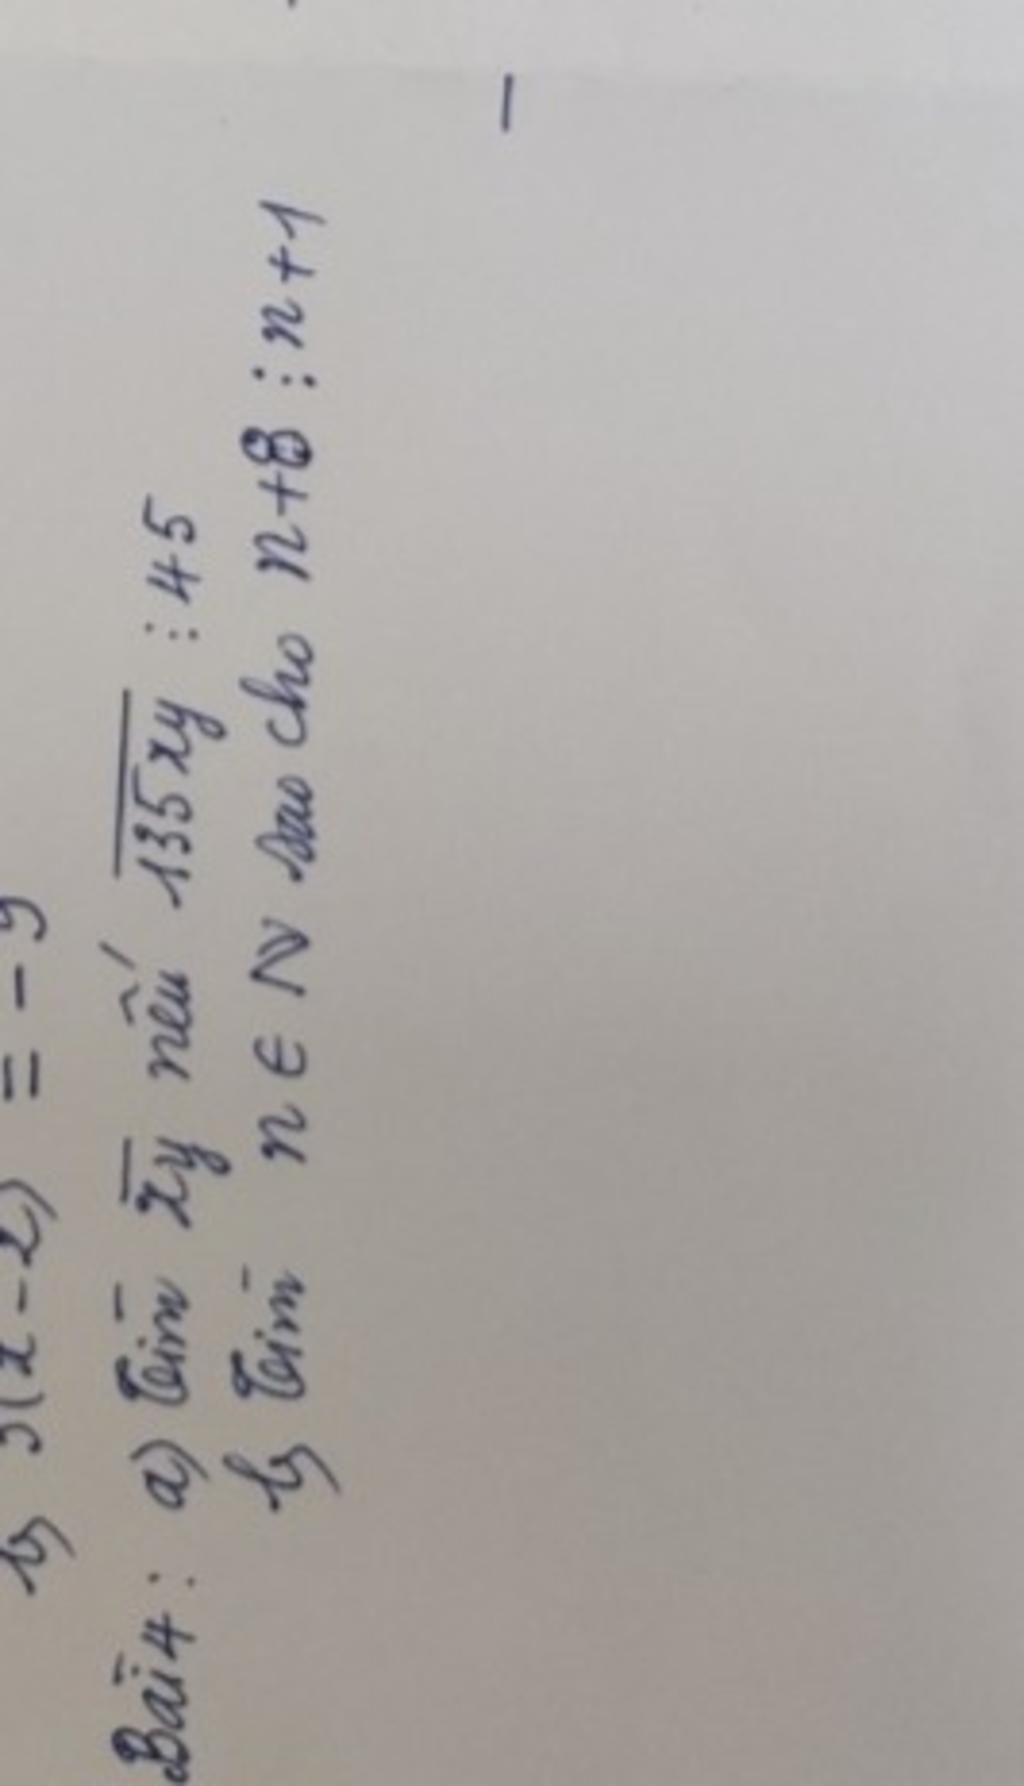 b) 3(x-2) = -9
Bài 4: a) Tìm \overline{xy} nếu \overline{135xy} ⋮ 45
b) Tìm n ∈ N sao cho n+8 ⋮ n+1